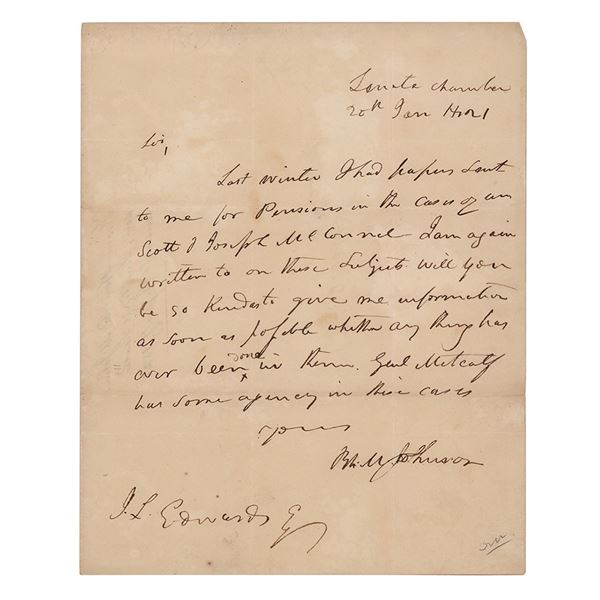 Senate chamber
20th Jan 1821
Sir,
Last winter I had papers sent
to me for Pensions in the cases of Wm
Scott & Joseph McConnel I am again
written to on these subjects. Will you
be so kind as to give me information
as soon as possible whether any thing has
ever been done in them. Genl Metcalf
has some agency in these cases
yours
Rh: M Johnson
J. L. Edwards Eq
over